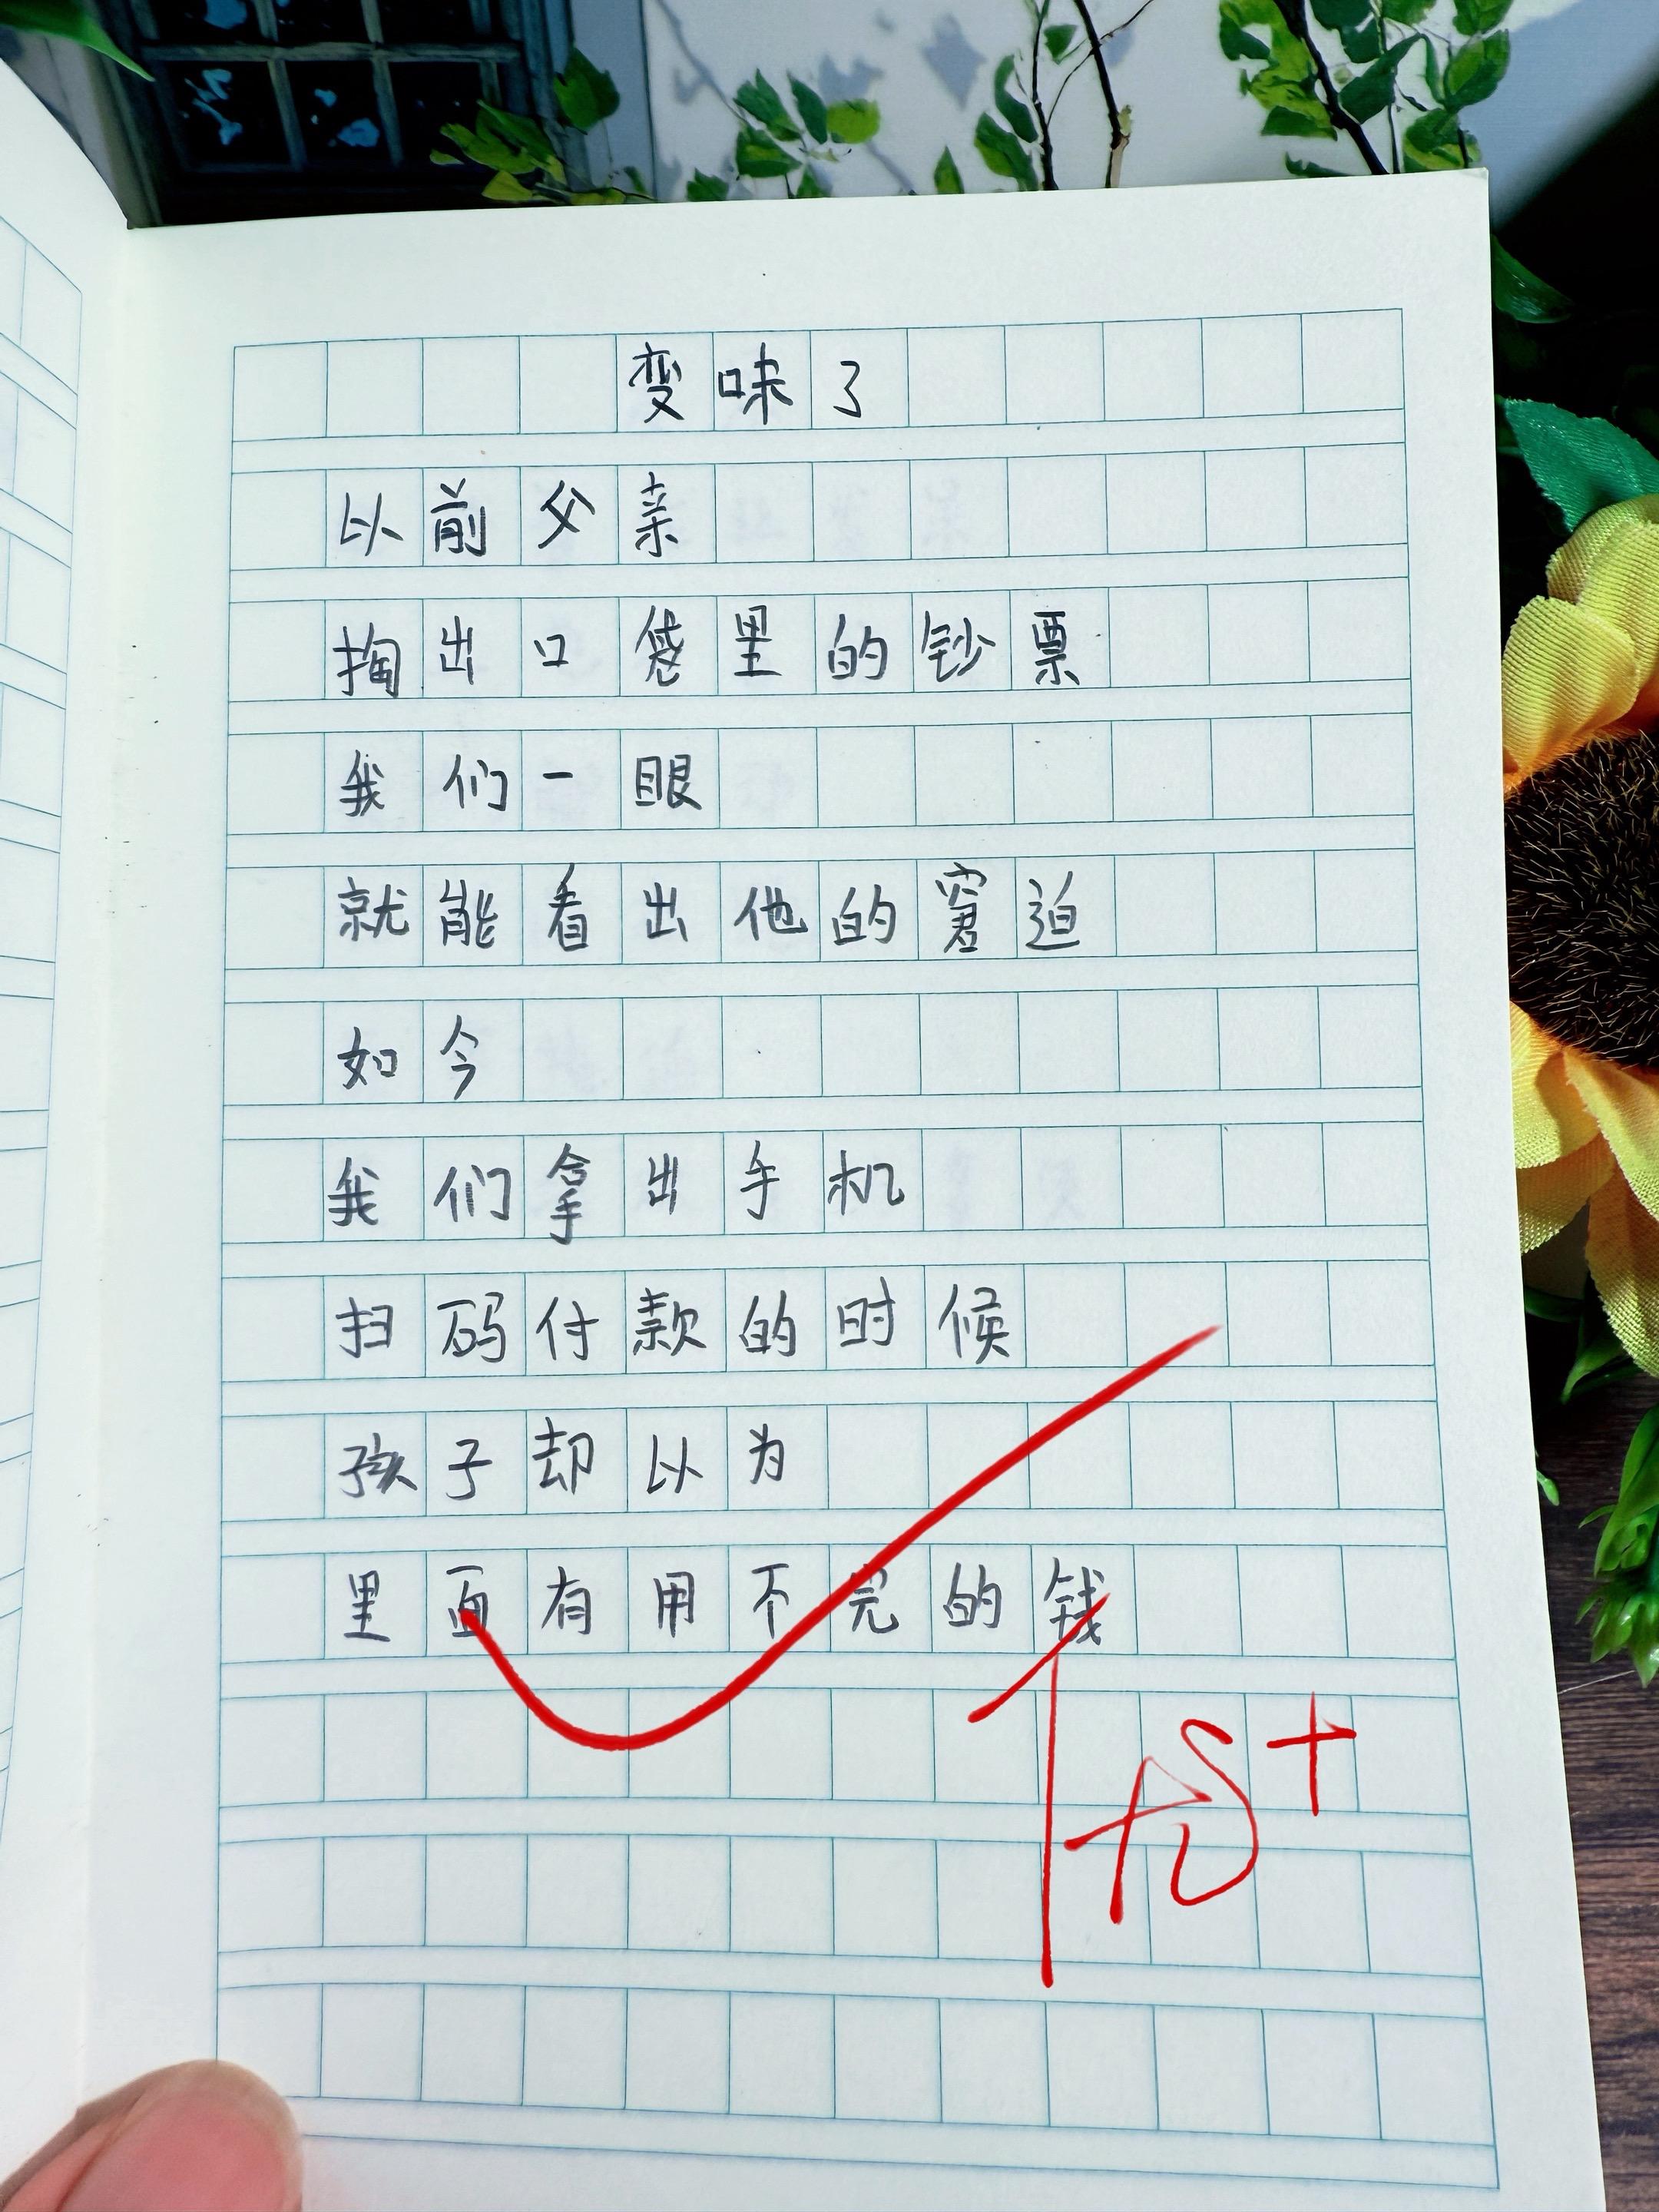 变味了
以前父亲
掏出口袋里的钞票
我们一眼
就能看出他的窘迫
如今
我们拿出手机
扫码付款的时候
孩子却以为
里面有用不完的钱
优+